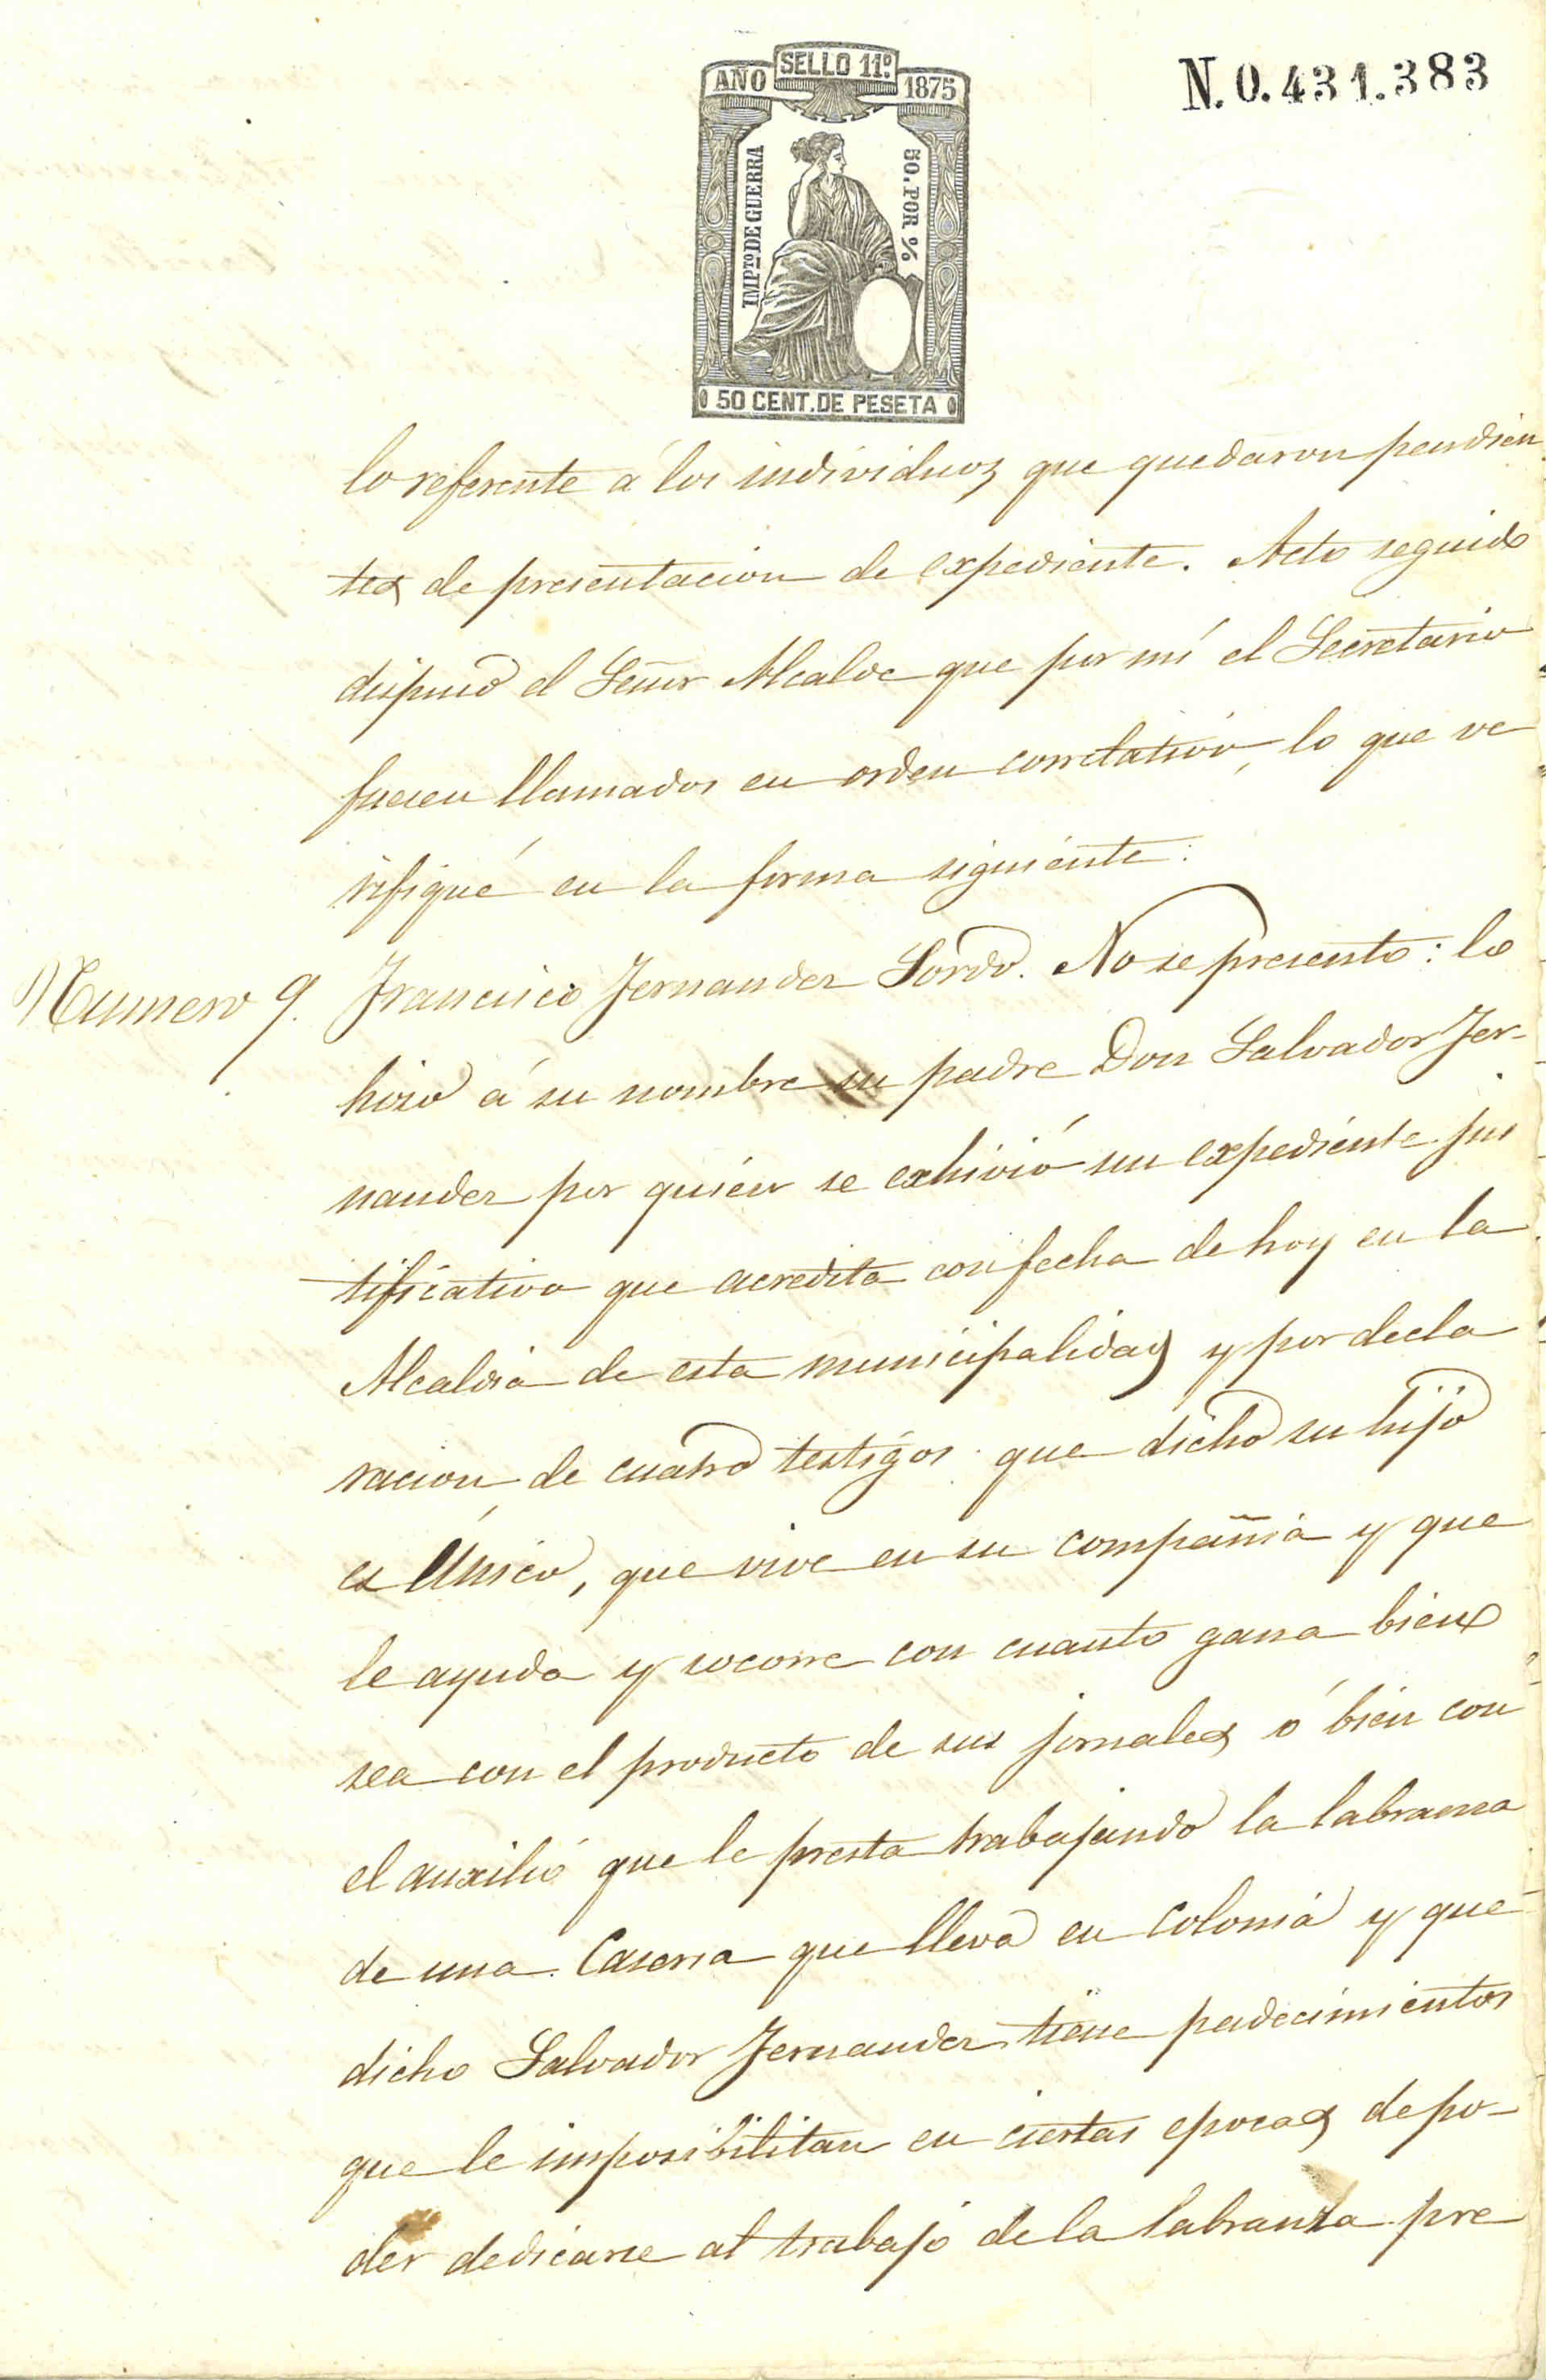 SELLO 11º
AÑO 1875
N. 0.431.383
IMPTO DE GUERRA
50. POR %
50 CENT. DE PESETA
lo referente á los individuos que quedaron pendien
tes de presentacion de expediente. Acto seguido
dispuso el Señor Alcalde que por mí el Secretario
fuesen llamados en orden correlativo, lo que ve
rifiqué en la forma siguiente:
Numero 9. Francisco Fernandez Sordo. No se presento: lo
hizo á su nombre su padre Don Salvador Fer-
nandez por quien se exhivió un expediente jus
tificativo que acredita con fecha de hoy en la
Alcaldia de esta municipalidad y por decla
racion de cuatro testigos que dicho su hijo
es Único, que vive en su compañia y que
le ayuda y socorre con cuanto gana bien
sea con el producto de sus jornales ó bien con
el auxilio que le presta trabajando la labranza
de una Caseria que lleva en colonia y que
dicho Salvador Fernandez tiene padecimientos
que le imposibilitan en ciertas epocas de po-
der dedicarse al trabajo de la labranza pre